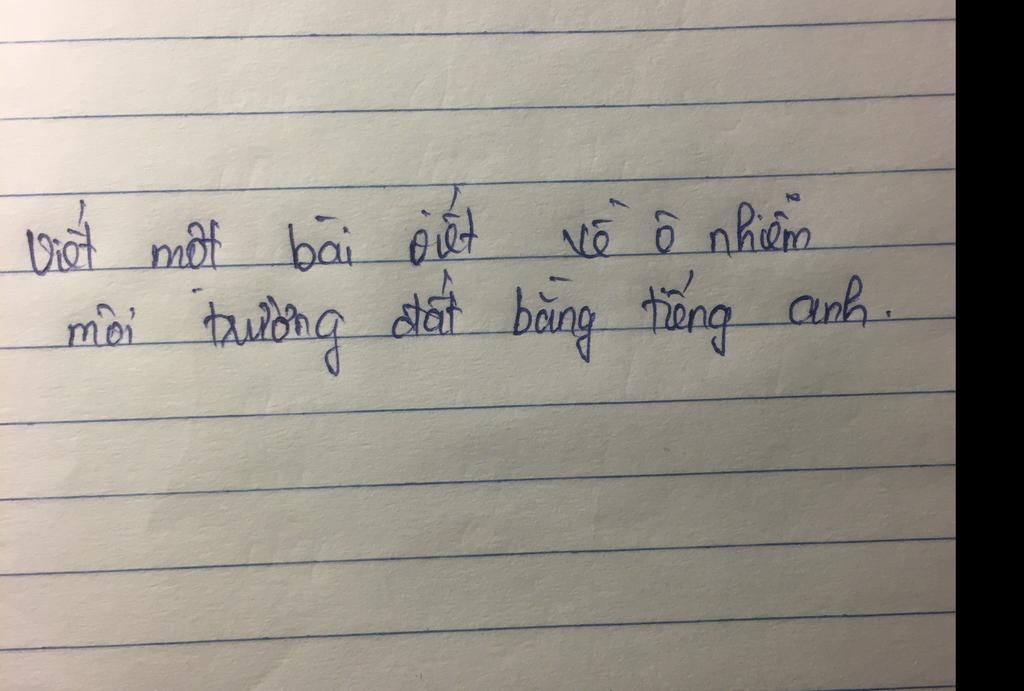 Viết một bài viết về ô nhiễm
môi trường đất bằng tiếng anh.